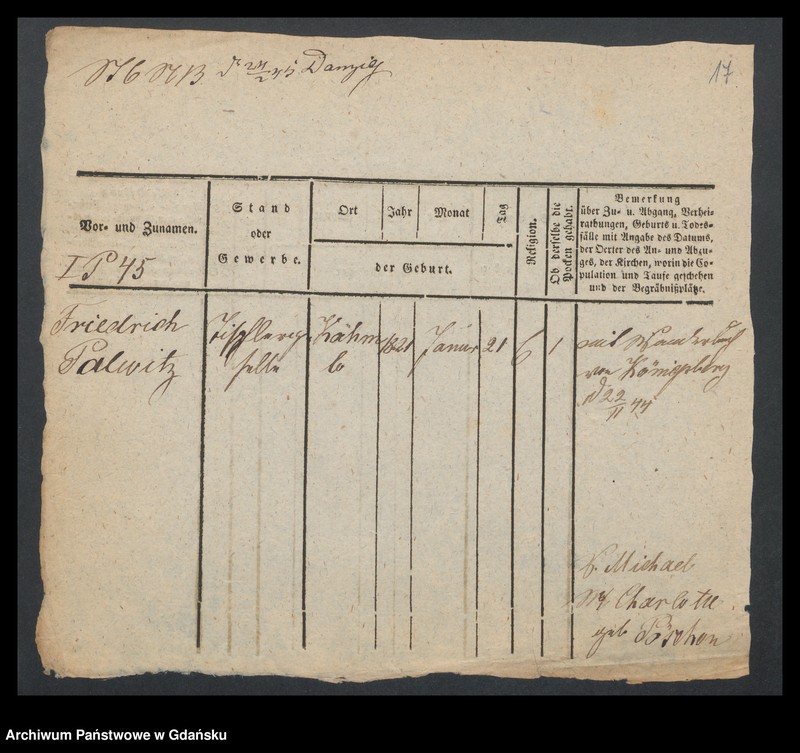 d 24/2 45 Danzig
17
Vor- und Zunamen.
Stand
oder
Gewerbe.
Ort
Jahr
Monat
Tag
der Geburt.
Religion.
Ob derselbe die
Pocken gehabt.
Bemerkung
über Zu- u. Abgang, Verhei-
rathungen, Geburts u. Todes-
fälle mit Angabe des Datums,
der Oerter des An- und Abzu-
ges, der Kirchen, worin die Co-
pulation und Taufe geschehen
und der Begräbnißplätze.
I P 45
Friedrich
Palwitz
Tischlerge
selle
1821
Januar
21
1
mit Wanderbuch
von Königsberg
d 22/11 44
V. Michael
Charlotte
geb
Archiwum Państwowe w Gdańsku